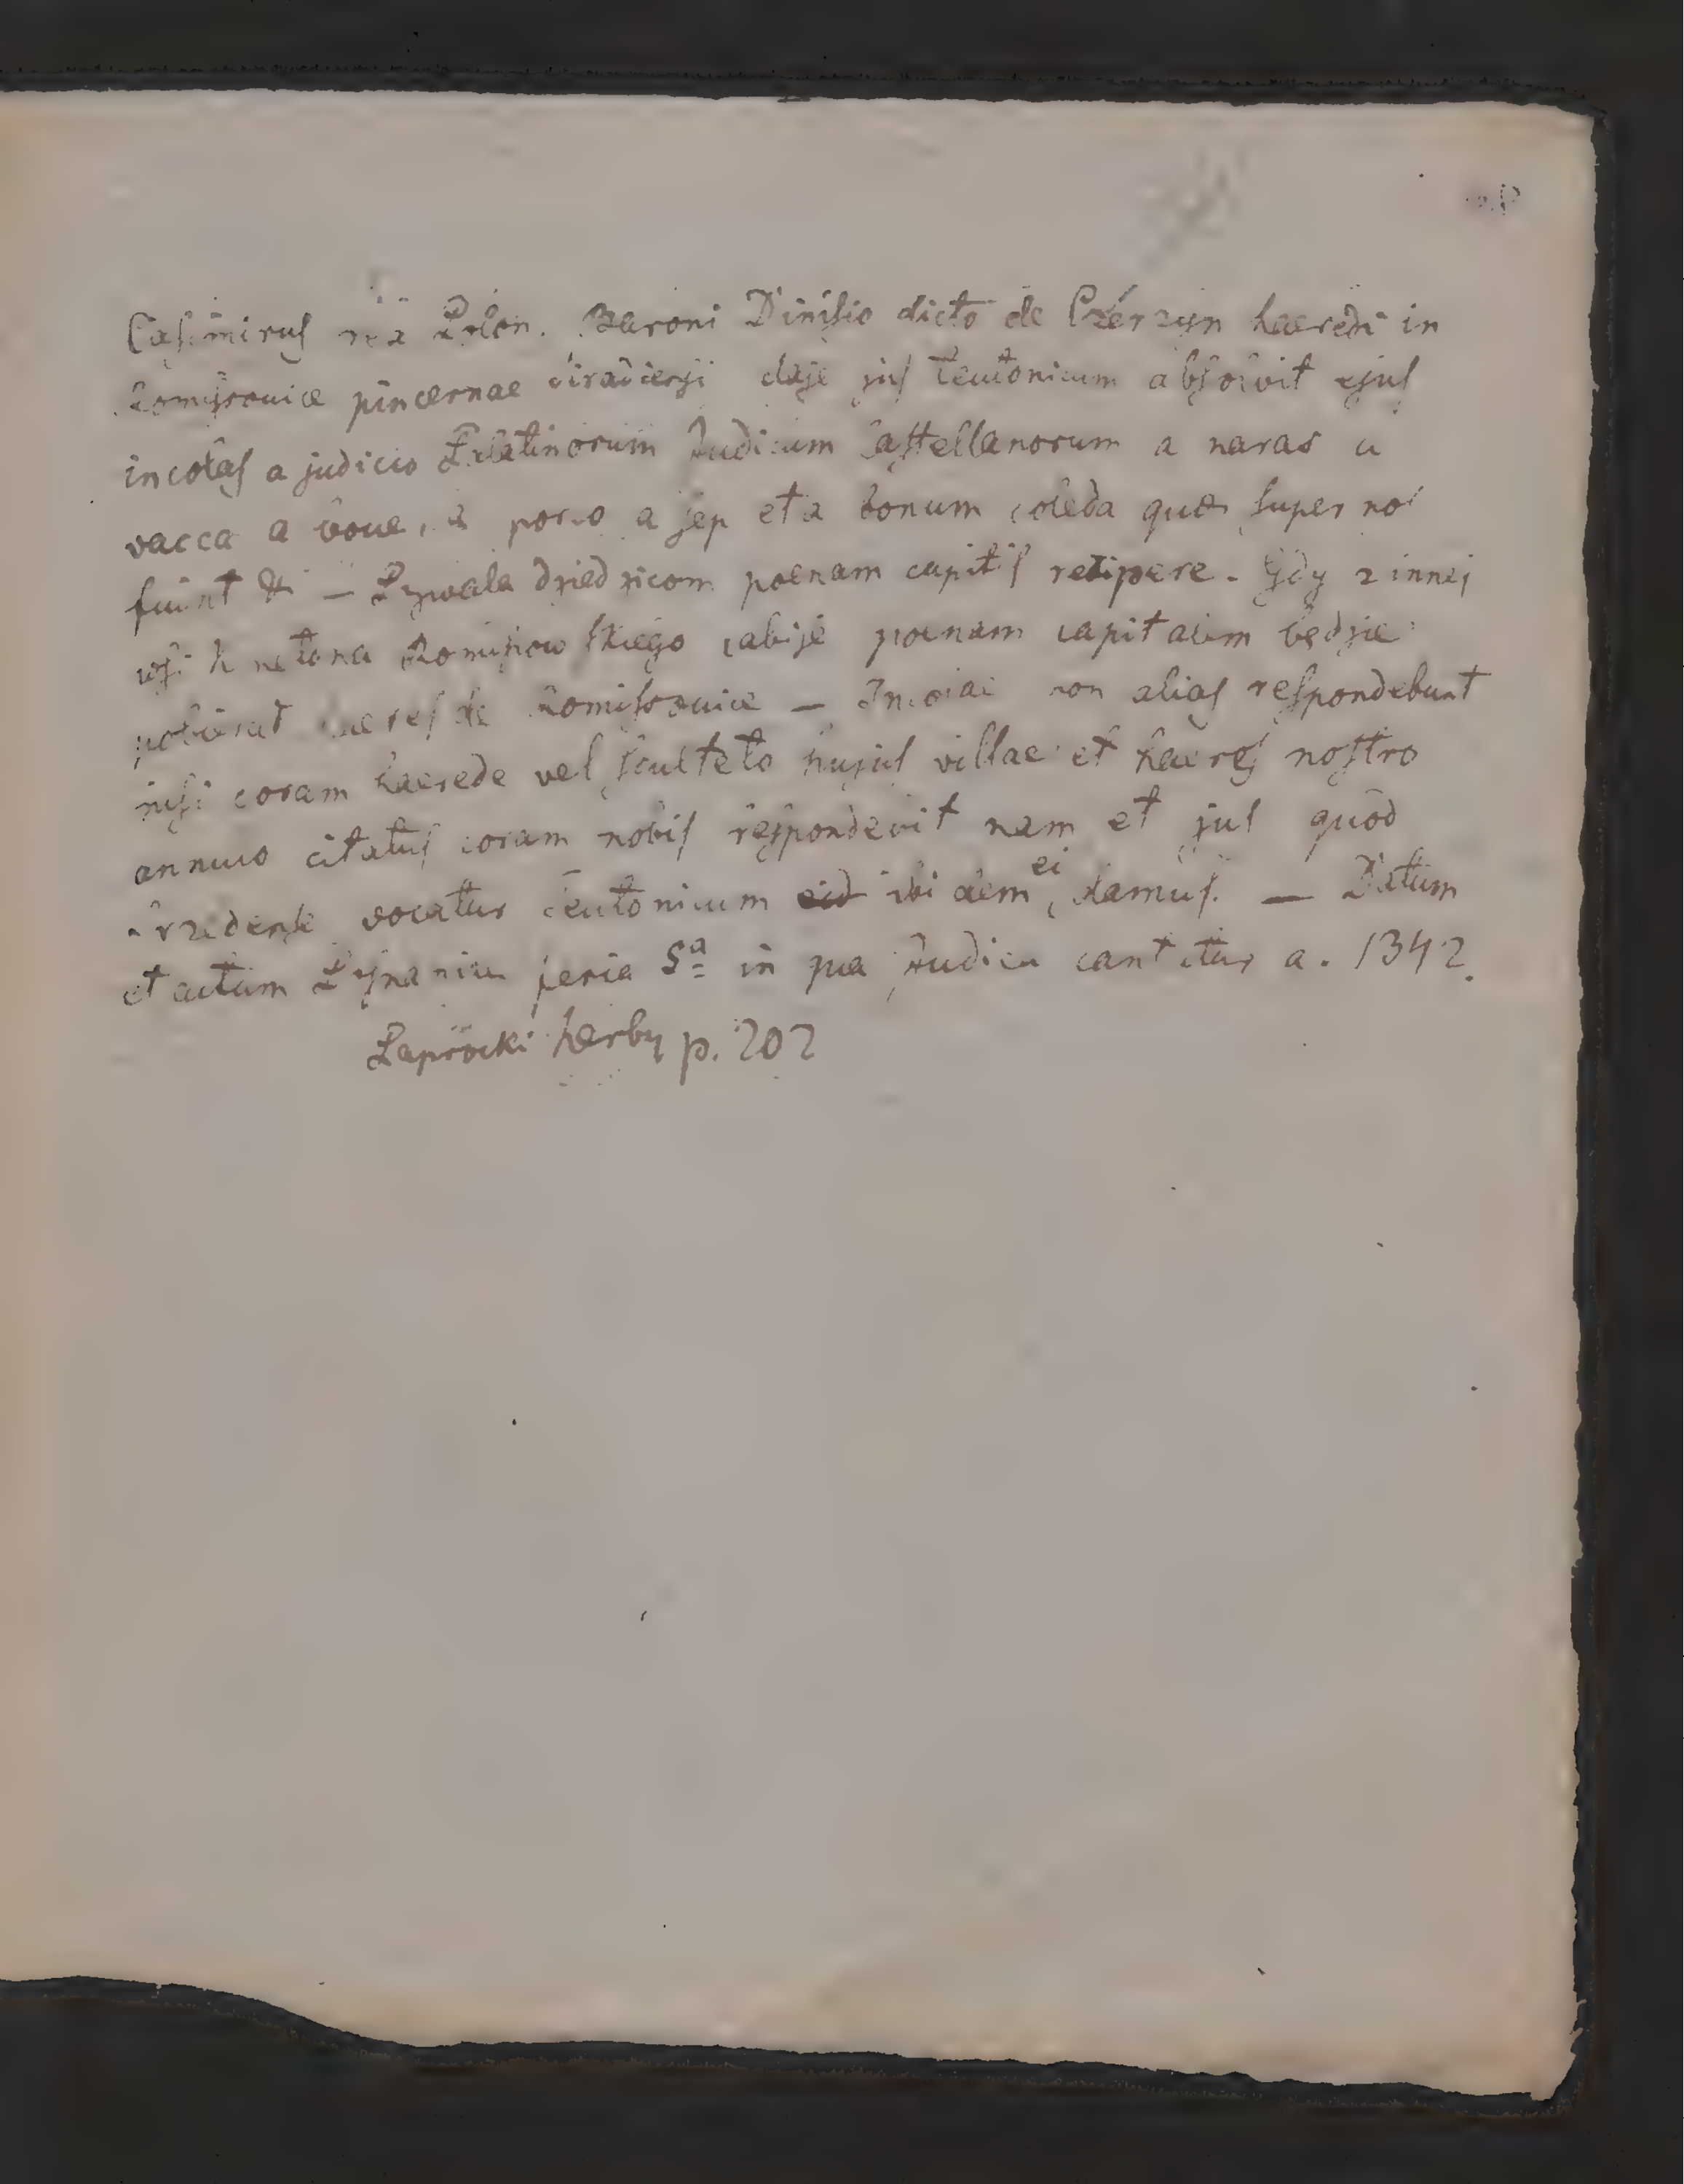 Casimirus rex Polon. Baroni Dinisio dicto de Czerzyn haeredi in
pincernae Siradiensi daje jus Teutonicum absolvit ejus
incolas a judicio Palatinorum Judicum Castellanorum a naraz a
vacca a bove, a porco a sep et a bonum coleda quae super
fuint & — Pozwala dziedzicom poenam capitis recipere. Gdy z innej
wsi Kmetona zabije poenam capitalem będzie
pobierał haeres de — Incolae non alias respondebunt
nisi coram haerede vel sculteto hujus villae et haeres nostro
annulo citatus coram nobis respondebit nam et jus quod
Srzedense vocatur Teutonicum ibidem ei damus. — Datum
et actum feria 5a in qua Judica cantatur a. 1342.
Paprocki herby p. 202